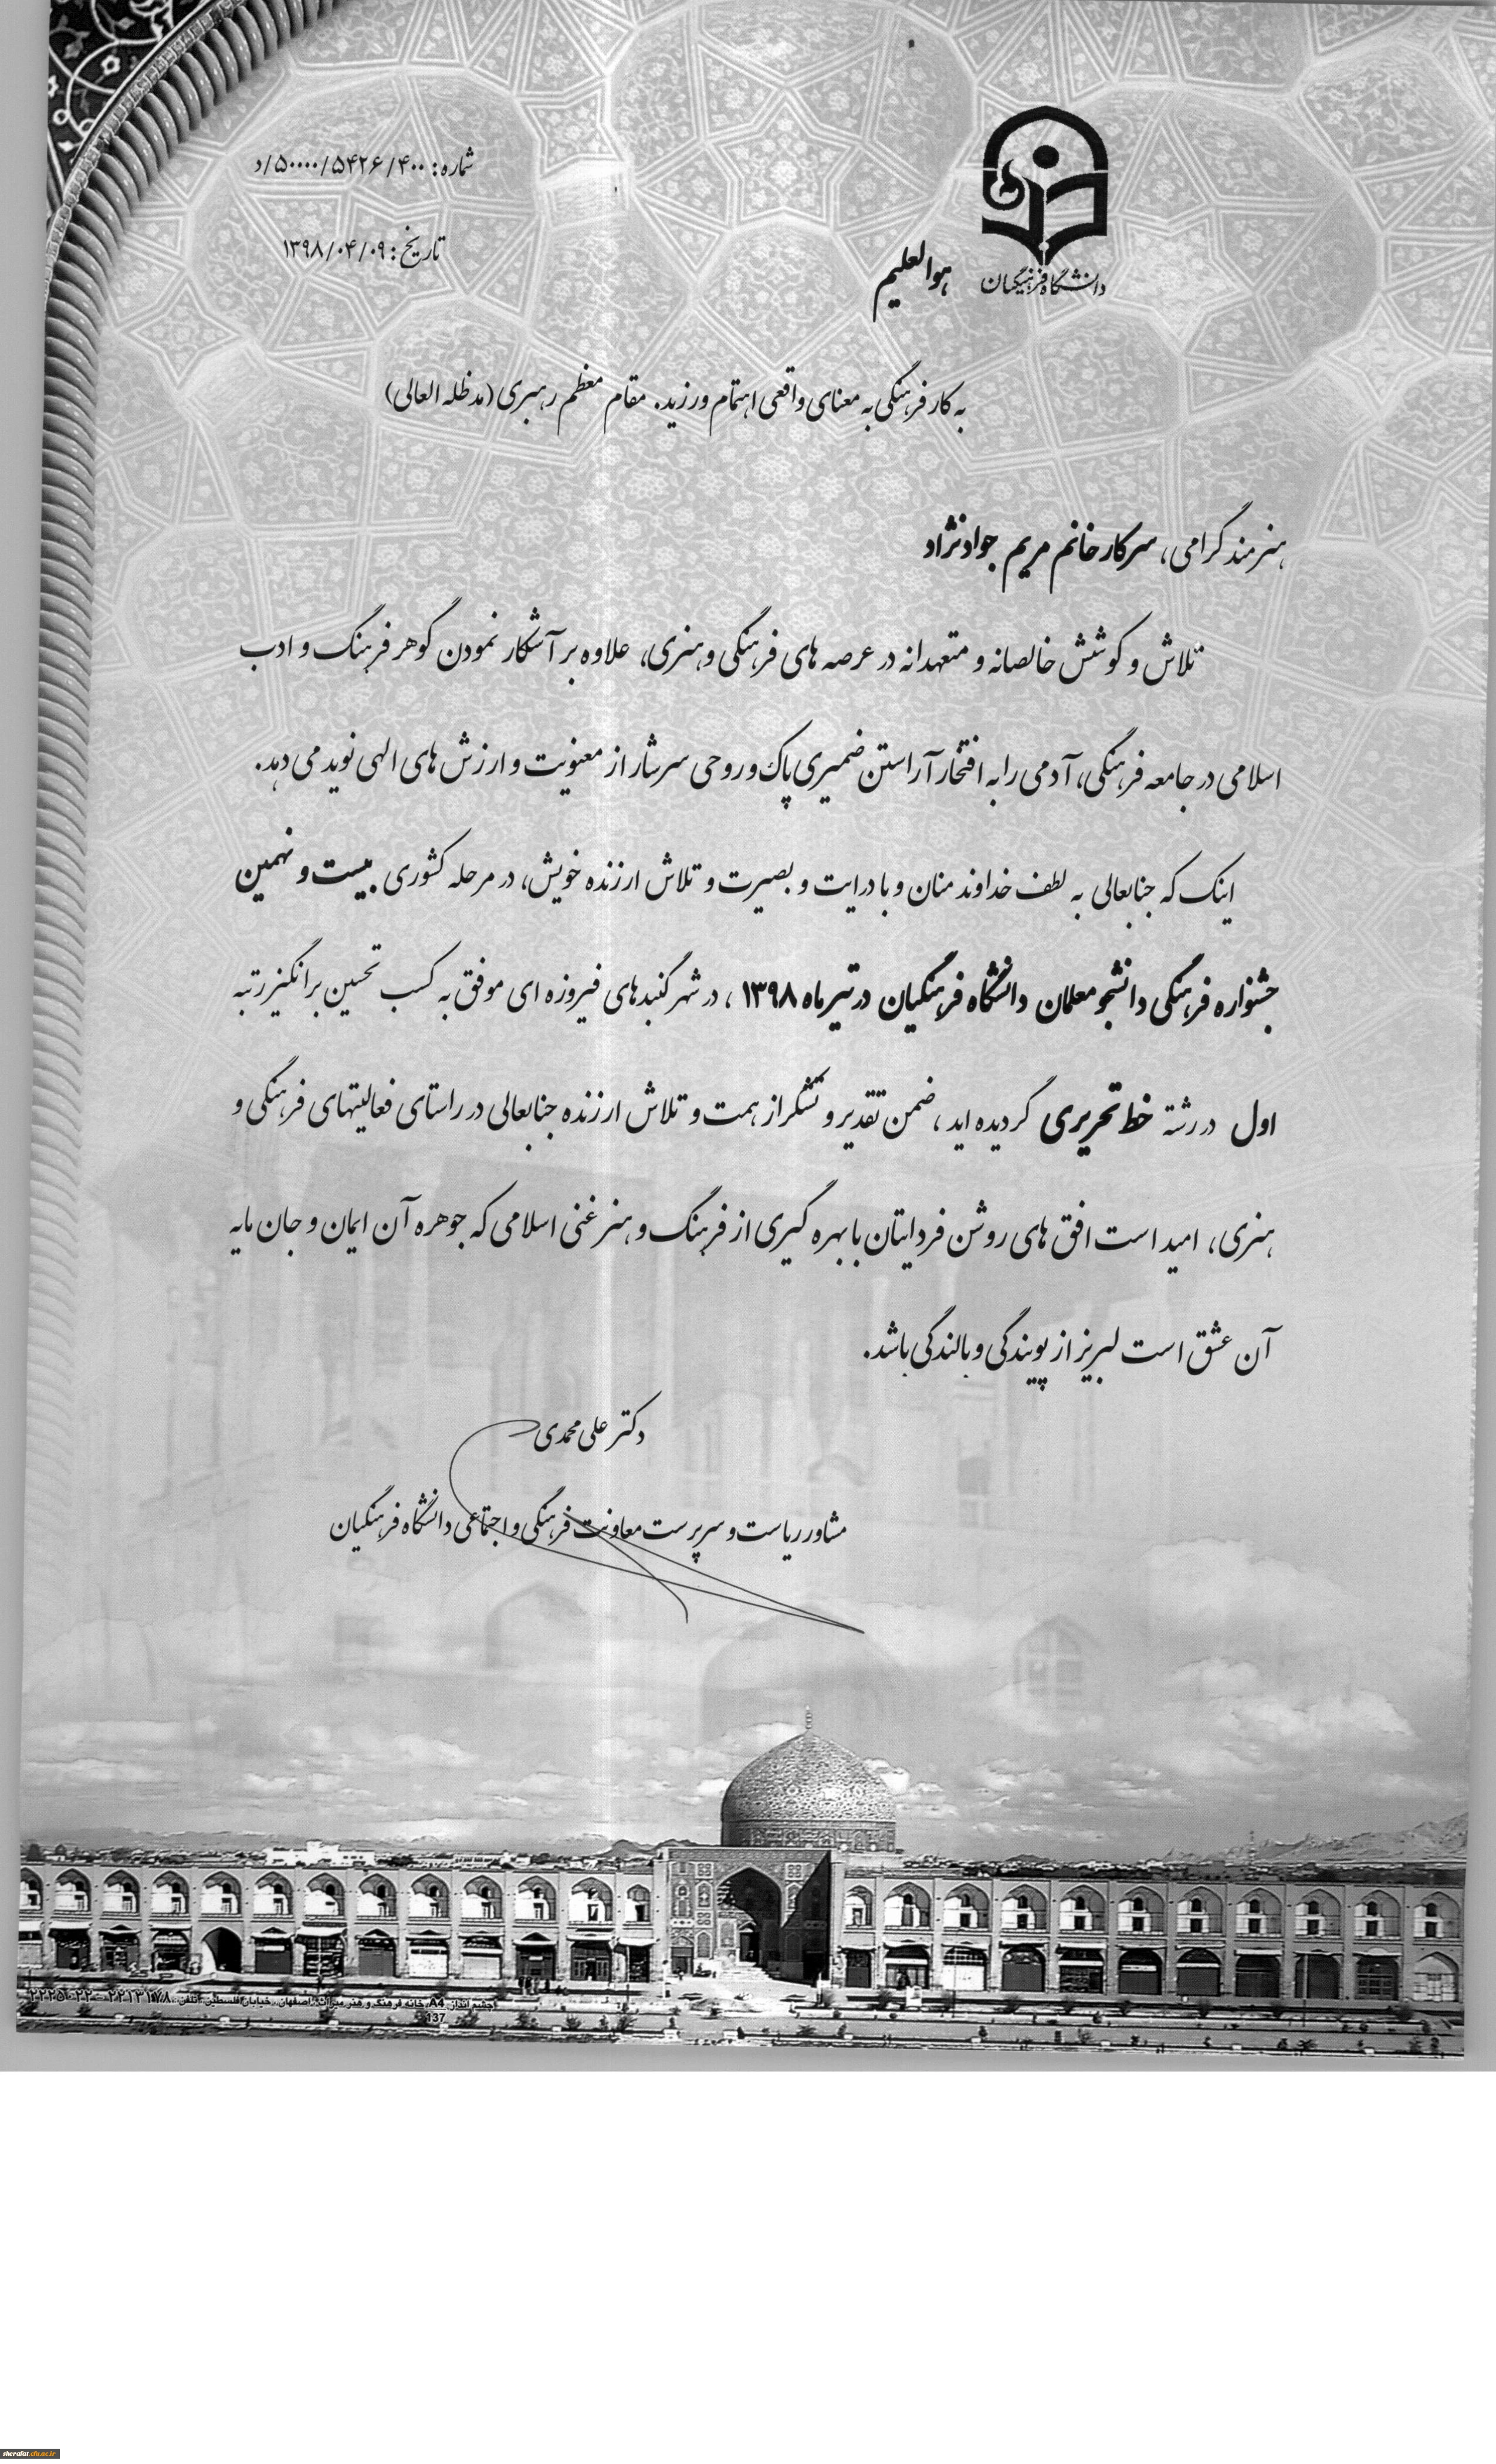 شماره: ۵۰۰۰۰/۵۴۲۶/۴۰۰/د
تاریخ: ۱۳۹۸/۰۴/۰۹
دانشگاه فرهنگیان
هوالعلیم
به کار فرهنگی به معنای واقعی اهتمام ورزید. مقام معظم رهبری (مدظله العالی)
هنرمند گرامی، سرکار خانم مریم جوادنژاد
تلاش و کوشش خالصانه و متعهدانه در عرصه های فرهنگی و هنری، علاوه بر آشکار نمودن گوهر فرهنگ و ادب
اسلامی در جامعه فرهنگی، آدمی را به افتخار آراستن ضمیری پاک و روحی سرشار از معنویت و ارزش های الهی نوید می دهد.
اینک که جنابعالی به لطف خداوند منان و با درایت و بصیرت و تلاش ارزنده خویش، در مرحله کشوری بیست و نهمین
جشنواره فرهنگی دانشجو معلمان دانشگاه فرهنگیان در تیرماه ۱۳۹۸ ، در شهر گنبدهای فیروزه ای موفق به کسب تحسین برانگیز رتبه
اول در رشته خط تحریری گردیده اید ، ضمن تقدیر و تشکر از همت و تلاش ارزنده جنابعالی در راستای فعالیتهای فرهنگی و
هنری، امید است افق های روشن فردایتان با بهره گیری از فرهنگ و هنر غنی اسلامی که جوهره آن ایمان و جان مایه
آن عشق است لبریز از پویندگی و بالندگی باشد.
دکتر علی محمدی
مشاور ریاست و سرپرست معاونت فرهنگی و اجتماعی دانشگاه فرهنگیان
چشم انداز A4، خانه فرهنگ و هنر میراث، اصفهان، خیابان فلسطین، تلفن:
137
sherafat.cfu.ac.ir